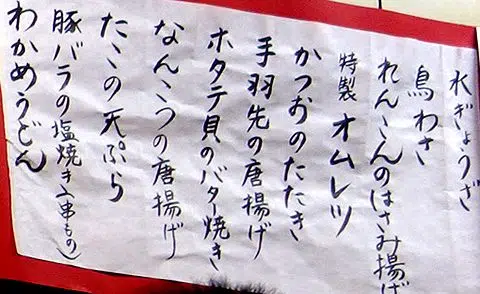 水ぎょうざ
鳥わさ
れんこんのはさみ揚げ
特製 オムレツ
かつおのたたき
手羽先の唐揚げ
ホタテ貝のバター焼き
なんこつの唐揚げ
たこの天ぷら
豚バラの塩焼き(串もの)
わかめうどん